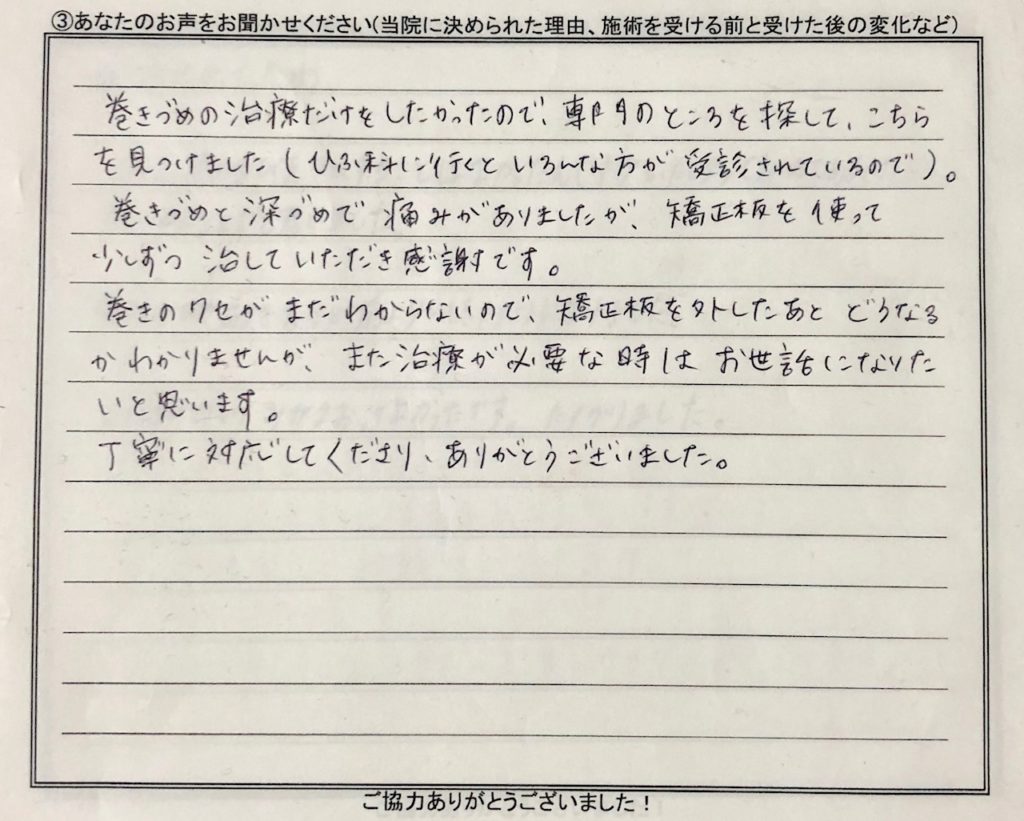 ③あなたのお声をお聞かせください(当院に決められた理由、施術を受ける前と受けた後の変化など)
巻きづめの治療だけをしたかったので、専門のところを探して、こちら
を見つけました(ひふ科に行くといろんな方が受診されているので)。
巻きづめと深づめで痛みがありましたが、矯正板を使って
少しずつ治していただき感謝です。
巻きのクセがまだわからないので、矯正板を外したあとどうなる
かわかりませんが、また治療が必要な時はお世話になりた
いと思います。
丁寧に対応してくださり、ありがとうございました。
ご協力ありがとうございました!